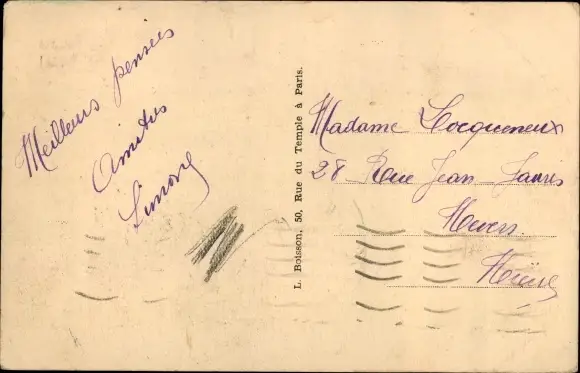 Meilleurs pensées
Amitiés
Simone
L. Boisson, 50, Rue du Temple à Paris.
Madame Locqueneux
28 Rue Jean-Jaurès
Nevers.
Nièvre